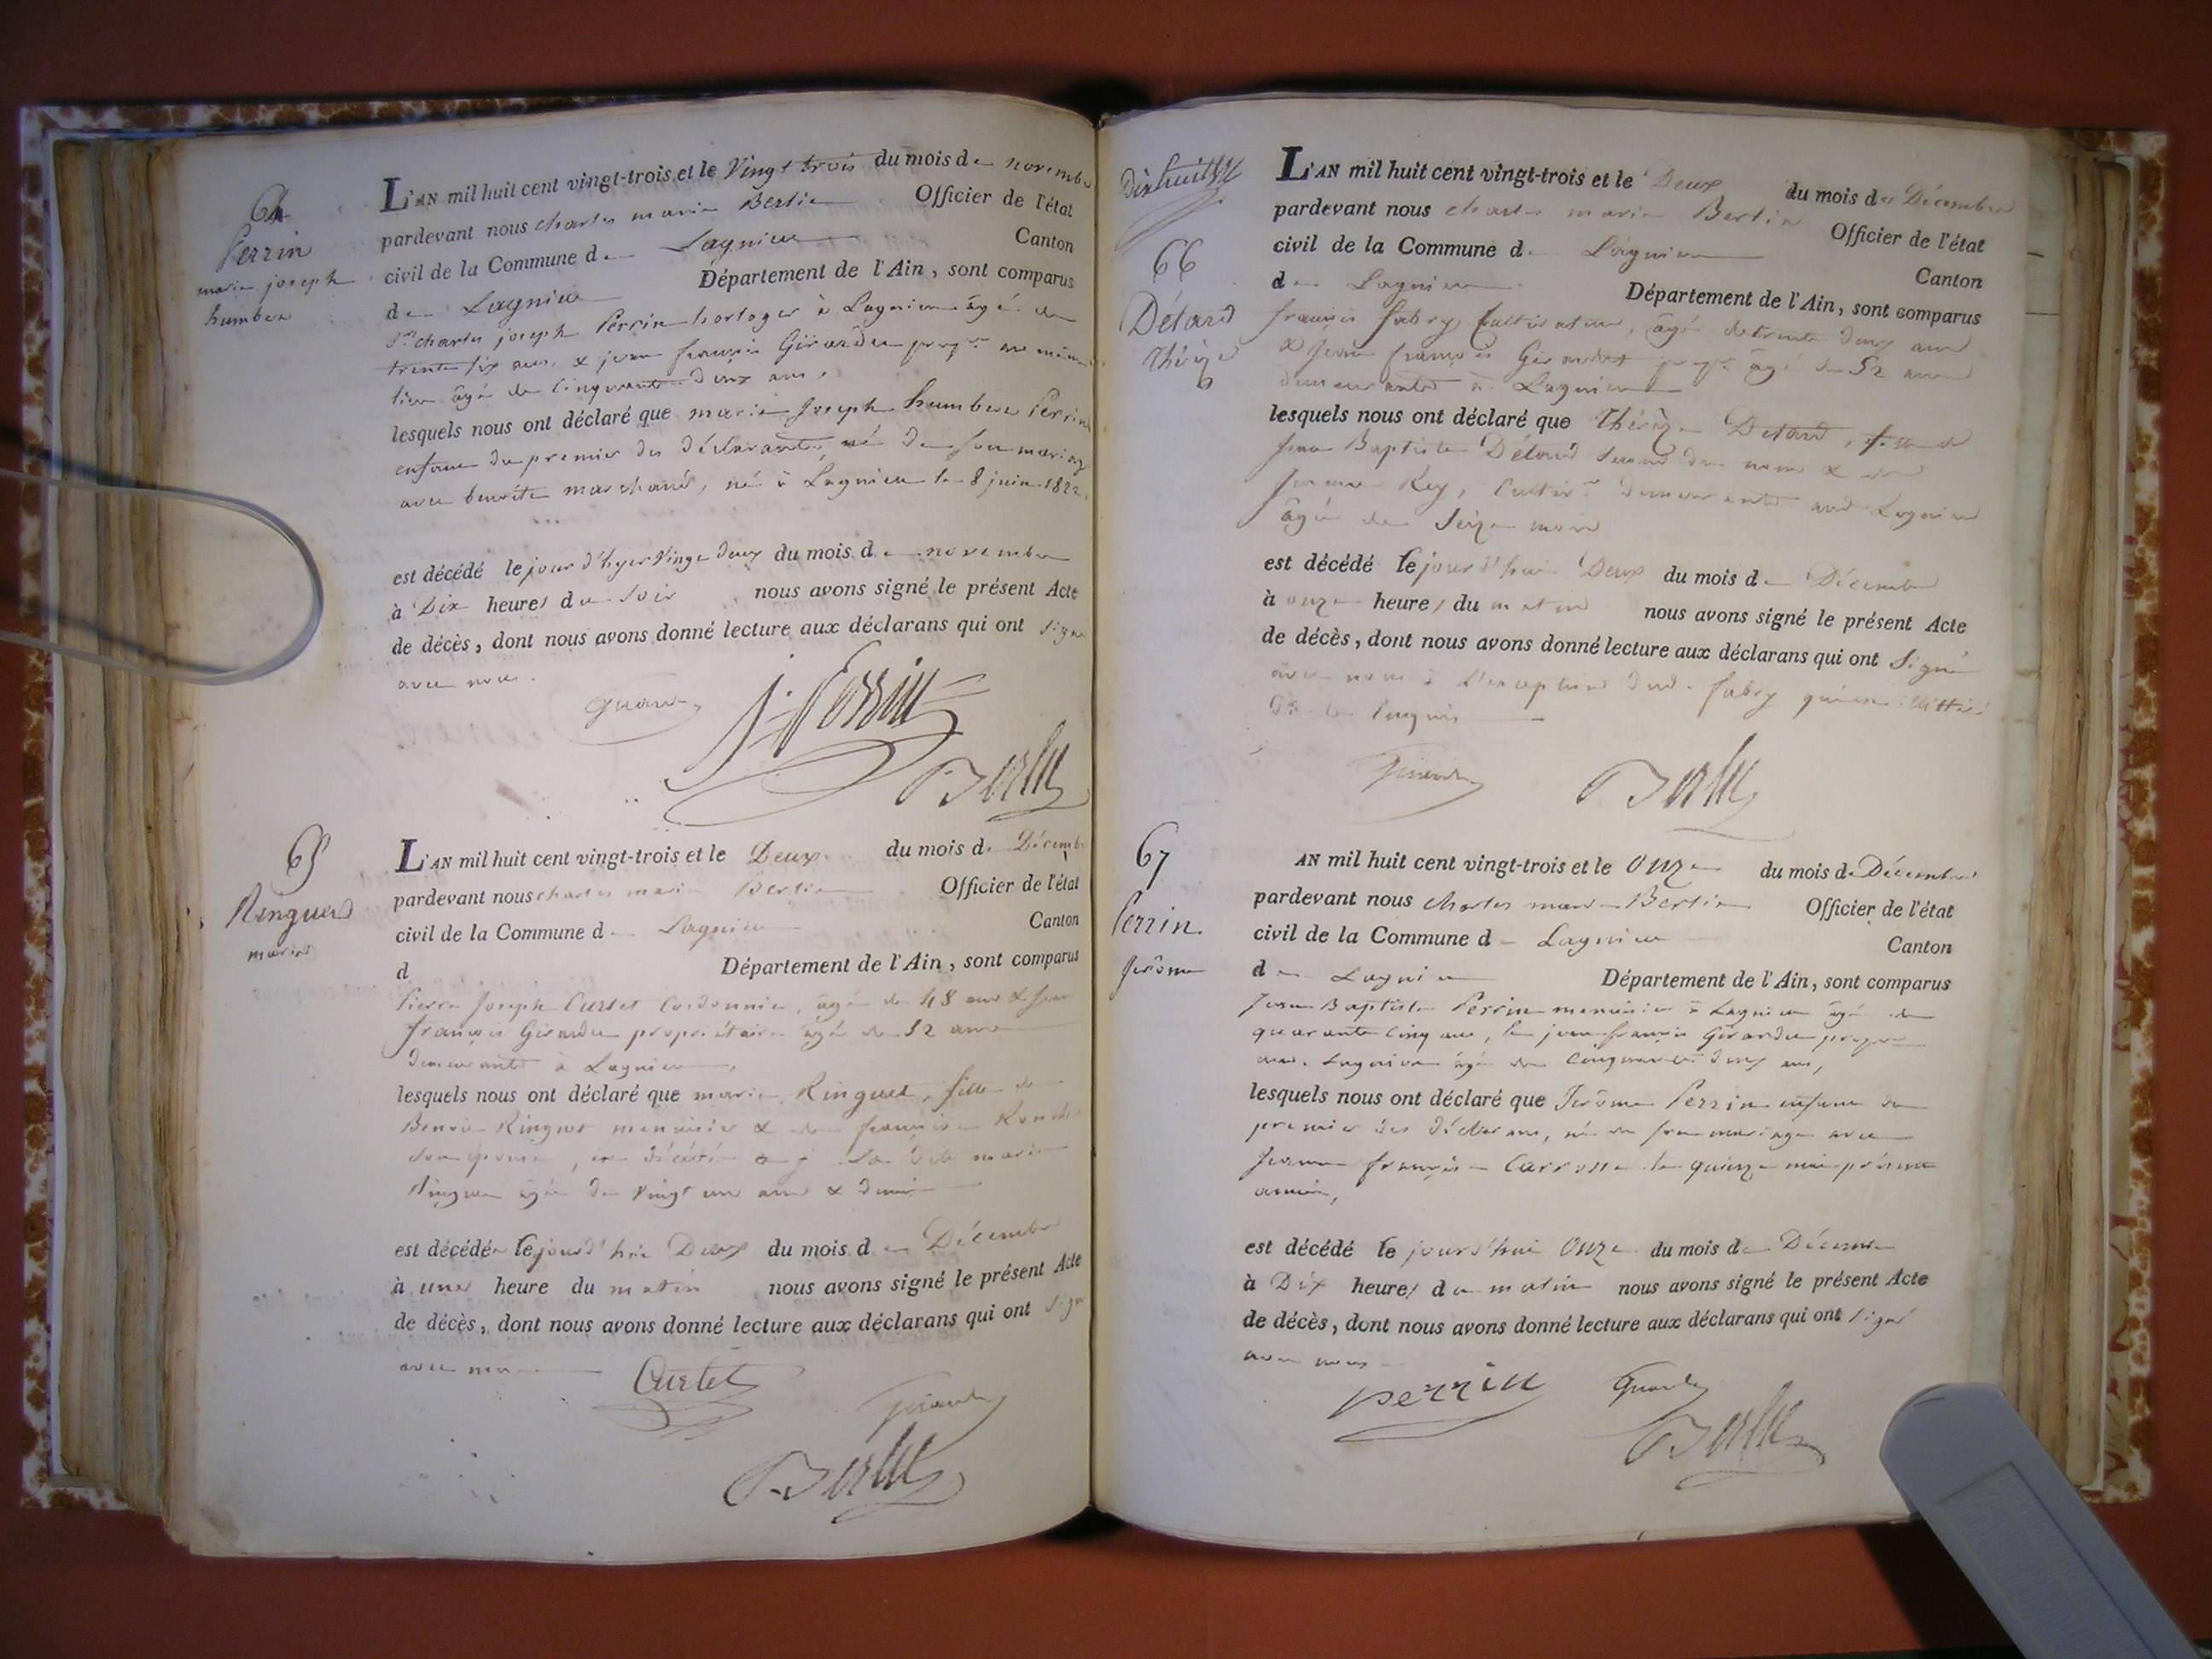 64
Perrin
marie joseph
humbert
L'AN mil huit cent vingt-trois et le Vingt trois du mois de novembre
pardevant nous charles marie Bertin Officier de l'état
civil de la Commune de Lagnieu Canton
de Lagnieu Département de l'Ain, sont comparus
Sr. charles joseph Perrin horloger à Lagnieu âgé de
trente six ans, & jean françois Girardin
âgé de Cinquante Deux ans,
lesquels nous ont déclaré que marie Joseph humbert Perrin
enfant du premier des déclarants, né de son mariage
avec benoite marchand, né à Lagnieu le 8 juin 1822,
est décédé le jour d'hyer Vingt deux du mois de novembre
à Dix heures du Soir nous avons signé le présent Acte
de décès, dont nous avons donné lecture aux déclarans qui ont signé
avec nous.
J. Perrin
65
Ringued
marie
L'AN mil huit cent vingt-trois et le Deux du mois de Décemb
pardevant nous charles marie Bertin Officier de l'état
civil de la Commune de Lagnieu Canton
d Département de l'Ain, sont comparus
Pierre Joseph Curtet Cordonnier, âgé de 48 ans & jean
françois Girardin propriétaire âgé de 52 ans
demeurants à Lagnieu,
lesquels nous ont déclaré que marie Ringuet, fille de
Benoit Ringuet menuisier & de françoise
son épouse, la dite marie
Ringuet âgée de Vingt un ans & demi
est décédée le jourd'hui Deux du mois de Décembre
à une heure du matin nous avons signé le présent Acte
de décès, dont nous avons donné lecture aux déclarans qui ont signé
avec nous
Curtet
66
Détard
thérèze
L'AN mil huit cent vingt-trois et le Deux du mois de Décembre
pardevant nous charles marie Bertin Officier de l'état
civil de la Commune de Lagnieu Canton
de Lagnieu Département de l'Ain, sont comparus
françois fabry Cultivateur, âgé de trente deux ans
& jean françois Girardin âgé de 52 ans
demeurants à Lagnieu
lesquels nous ont déclaré que thérèze Detard, fille de
jean Baptiste Détard Second du nom & de
jeanne Rey, Cultivrs demeurants aud. Lagnieu
âgée de Seize mois
est décédé le jourd'hui Deux du mois de Décembre
à onze heures du matin nous avons signé le présent Acte
de décès, dont nous avons donné lecture aux déclarans qui ont Signé
avec nous à l'exception dud. fabry qui est illittré
67
Perrin.
Jerôme
AN mil huit cent vingt-trois et le Onze du mois de Décembre
pardevant nous charles marie Bertin Officier de l'état
civil de la Commune de Lagnieu Canton
de Lagnieu Département de l'Ain, sont comparus
Jean Baptiste Perrin menuisier à Lagnieu âgé de
quarante Cinq ans, & jean françois Girardin
aud. Lagnieu âgé de Cinquante deux ans,
lesquels nous ont déclaré que Jerôme Perrin enfant du
premier des déclarans, né de son mariage avec
jeanne françoise Carrosse le quinze mai présente
année,
est décédé le jourd'hui Onze du mois de Décembre
à Dix heures du matin nous avons signé le présent Acte
de décès, dont nous avons donné lecture aux déclarans qui ont signé
avec nous
Perrin